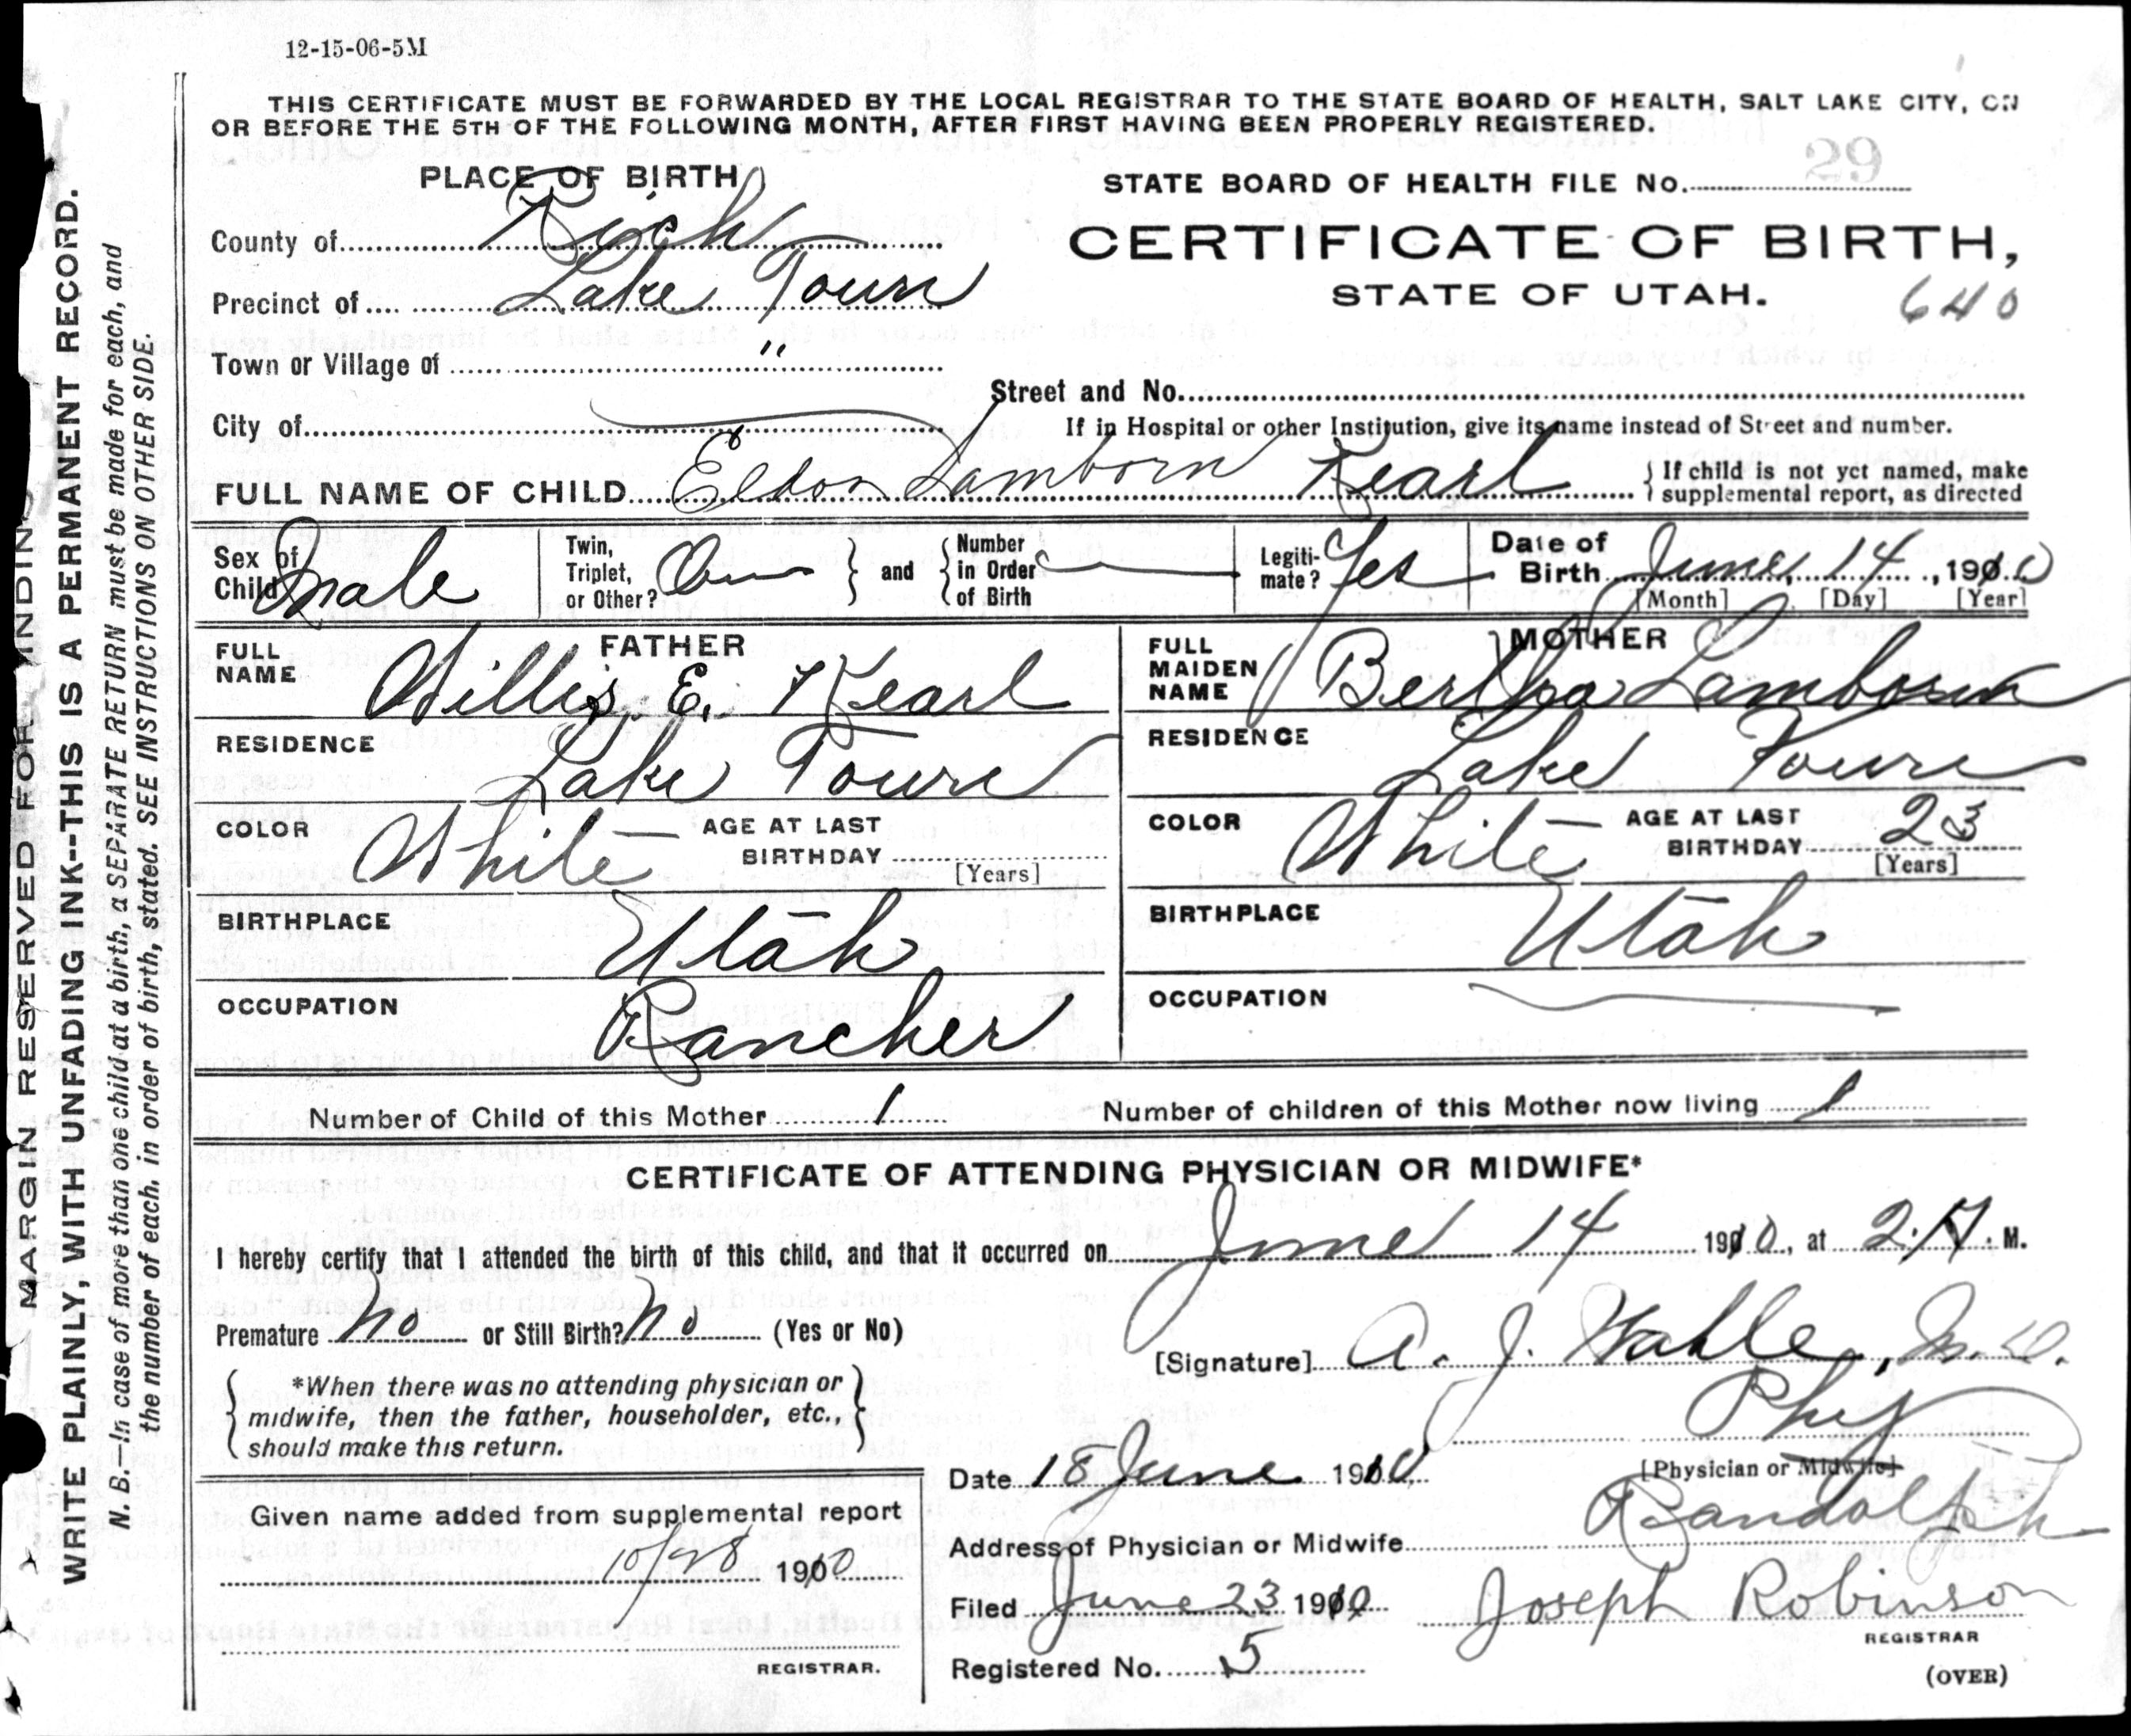 12-15-06-5M
THIS CERTIFICATE MUST BE FORWARDED BY THE LOCAL REGISTRAR TO THE STATE BOARD OF HEALTH, SALT LAKE CITY, ON
OR BEFORE THE 5TH OF THE FOLLOWING MONTH, AFTER FIRST HAVING BEEN PROPERLY REGISTERED.
MARGIN RESERVED FOR BINDING
WRITE PLAINLY, WITH UNFADING INK--THIS IS A PERMANENT RECORD.
N. B.—In case of more than one child at a birth, a SEPARATE RETURN must be made for each, and
the number of each, in order of birth, stated. SEE INSTRUCTIONS ON OTHER SIDE.
PLACE OF BIRTH
County of Rich
Precinct of Lake Town
Town or Village of "
City of
STATE BOARD OF HEALTH FILE No. 29
CERTIFICATE OF BIRTH,
STATE OF UTAH.
640
Street and No.
If in Hospital or other Institution, give its name instead of Street and number.
FULL NAME OF CHILD Eldon Lamborn Kearl
If child is not yet named, make
supplemental report, as directed
Sex of Child male
Twin, Triplet, or Other? One and Number in Order of Birth
Legitimate? Yes
Date of Birth June 14, 1910
[Month] [Day] [Year]
FATHER
FULL NAME Willis E. Kearl
RESIDENCE Lake Town
COLOR White AGE AT LAST BIRTHDAY [Years]
BIRTHPLACE Utah
OCCUPATION Rancher
MOTHER
FULL MAIDEN NAME Bertha Lamborn
RESIDENCE Lake Town
COLOR White AGE AT LAST BIRTHDAY 23 [Years]
BIRTHPLACE Utah
OCCUPATION
Number of Child of this Mother 1
Number of children of this Mother now living 1
CERTIFICATE OF ATTENDING PHYSICIAN OR MIDWIFE*
I hereby certify that I attended the birth of this child, and that it occurred on June 14 1910, at 2. A. M.
Premature no or Still Birth? no (Yes or No)
*When there was no attending physician or
midwife, then the father, householder, etc.,
should make this return.
[Signature] A. J. M. D.
Phy
[Physician or Midwife]
Date 18 June 1910
Address of Physician or Midwife Randolph
Filed June 23 1910 Joseph Robinson
REGISTRAR
Registered No. 5
(OVER)
Given name added from supplemental report
10/28 1910
REGISTRAR.